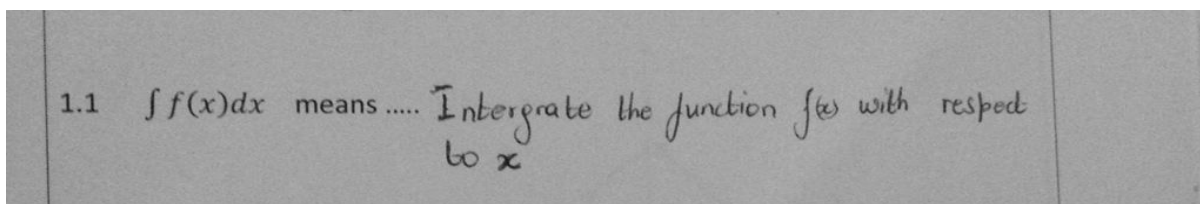 1.1 ∫ f(x)dx means ..... Intergrate the function f(x) with respect
to x